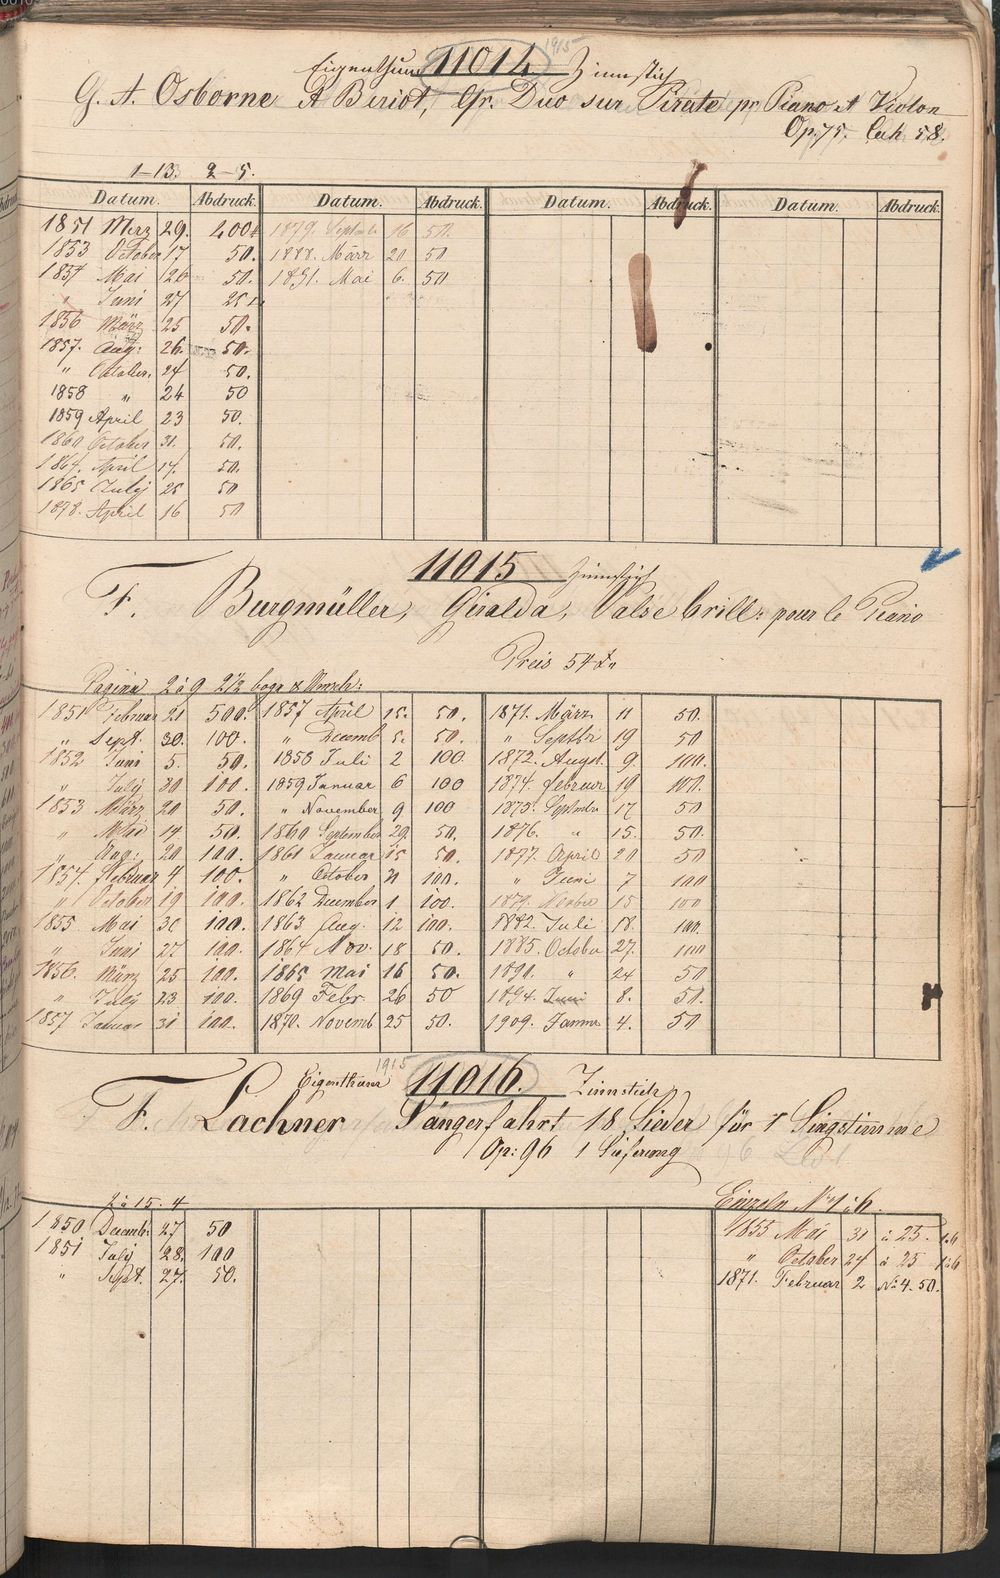 1915
Eigenthum 11014 Zinnstich
G. A. Osborne & Beriot, Gr. Duo sur Pirate pr Piano et Violon
Op. 75. Cah 58.
1–13. 2–5.
Datum. Abdruck. Datum. Abdruck. Datum. Abdruck. Datum. Abdruck.
1851 Merz 29. 200 1879. Septemb 16 50.
1853 October 17 50. 1888. März 20 50
1854 Mai 26 50. 1891. Mai 6. 50
" Juni 27 25
1856 März 25 50.
1857. Aug: 26. 50.
" October. 24 50.
1858 " 24 50
1859 April 23 50.
1860 October 31. 50.
1864. April 17. 50.
1865 July 25 50
1878. April 16 50
11015 Zinnstich
F. Burgmüller, Giralda, Valse brill: pour le Piano
Preis 54 x
Pagina 2 à 9 2 1/2 boga & Umsch:
1851 Februar 21 500. 1857 April 15. 50. 1871. März 11 50.
" Sept. 30. 100. " Decemb 5. 50. " Septbr 19 50
1852 Juni 5. 50. 1858 Juli 2 100 1872. Augst. 9. 100.
" July 30 100. 1859 Januar 6 100 1874. februar 19 100.
1853 März 20 50. " November 9 100 1875. Septmbr 17 50
" Mai 14 50. 1860 September 29. 50. 1876. " 15. 50.
" Aug: 20 100. 1861 Januar 15 50. 1877. April 20 50
1854. februar 4 100. " October 21 100. " Juni 7 100
" October 19 100. 1862 December 1 100. 1879. Novbr 15 100
1855 Mai 30 100. 1863 Aug. 12 100. 1882. Juli 18. 100.
" Juni 27 100. 1864 Nov. 18 50. 1885. October 27. 100
1856. März 25 100. 1865 Mai 16 50. 1890. " 24 50
" July 23 100. 1869 Febr. 26 50 1894. Juni 8. 50.
1857 Januar 31 100. 1870. Novemb 25 50. 1909. Januar 4. 50
1915
Eigenthum 11016. Zinnstich
F. Lachner Sängerfahrt 18 Lieder für 1 Singstimme
Op: 96 1 Lieferung
2 à 15. 4 Einzeln No 1 à 6.
1850 Decemb: 27 50 1855 Mai 31 à 25. 1à6
1851 July 28. 100 " October 24 à 25 1à6
" Sept. 27. 50. 1871. Februar 2 No 4. 50.